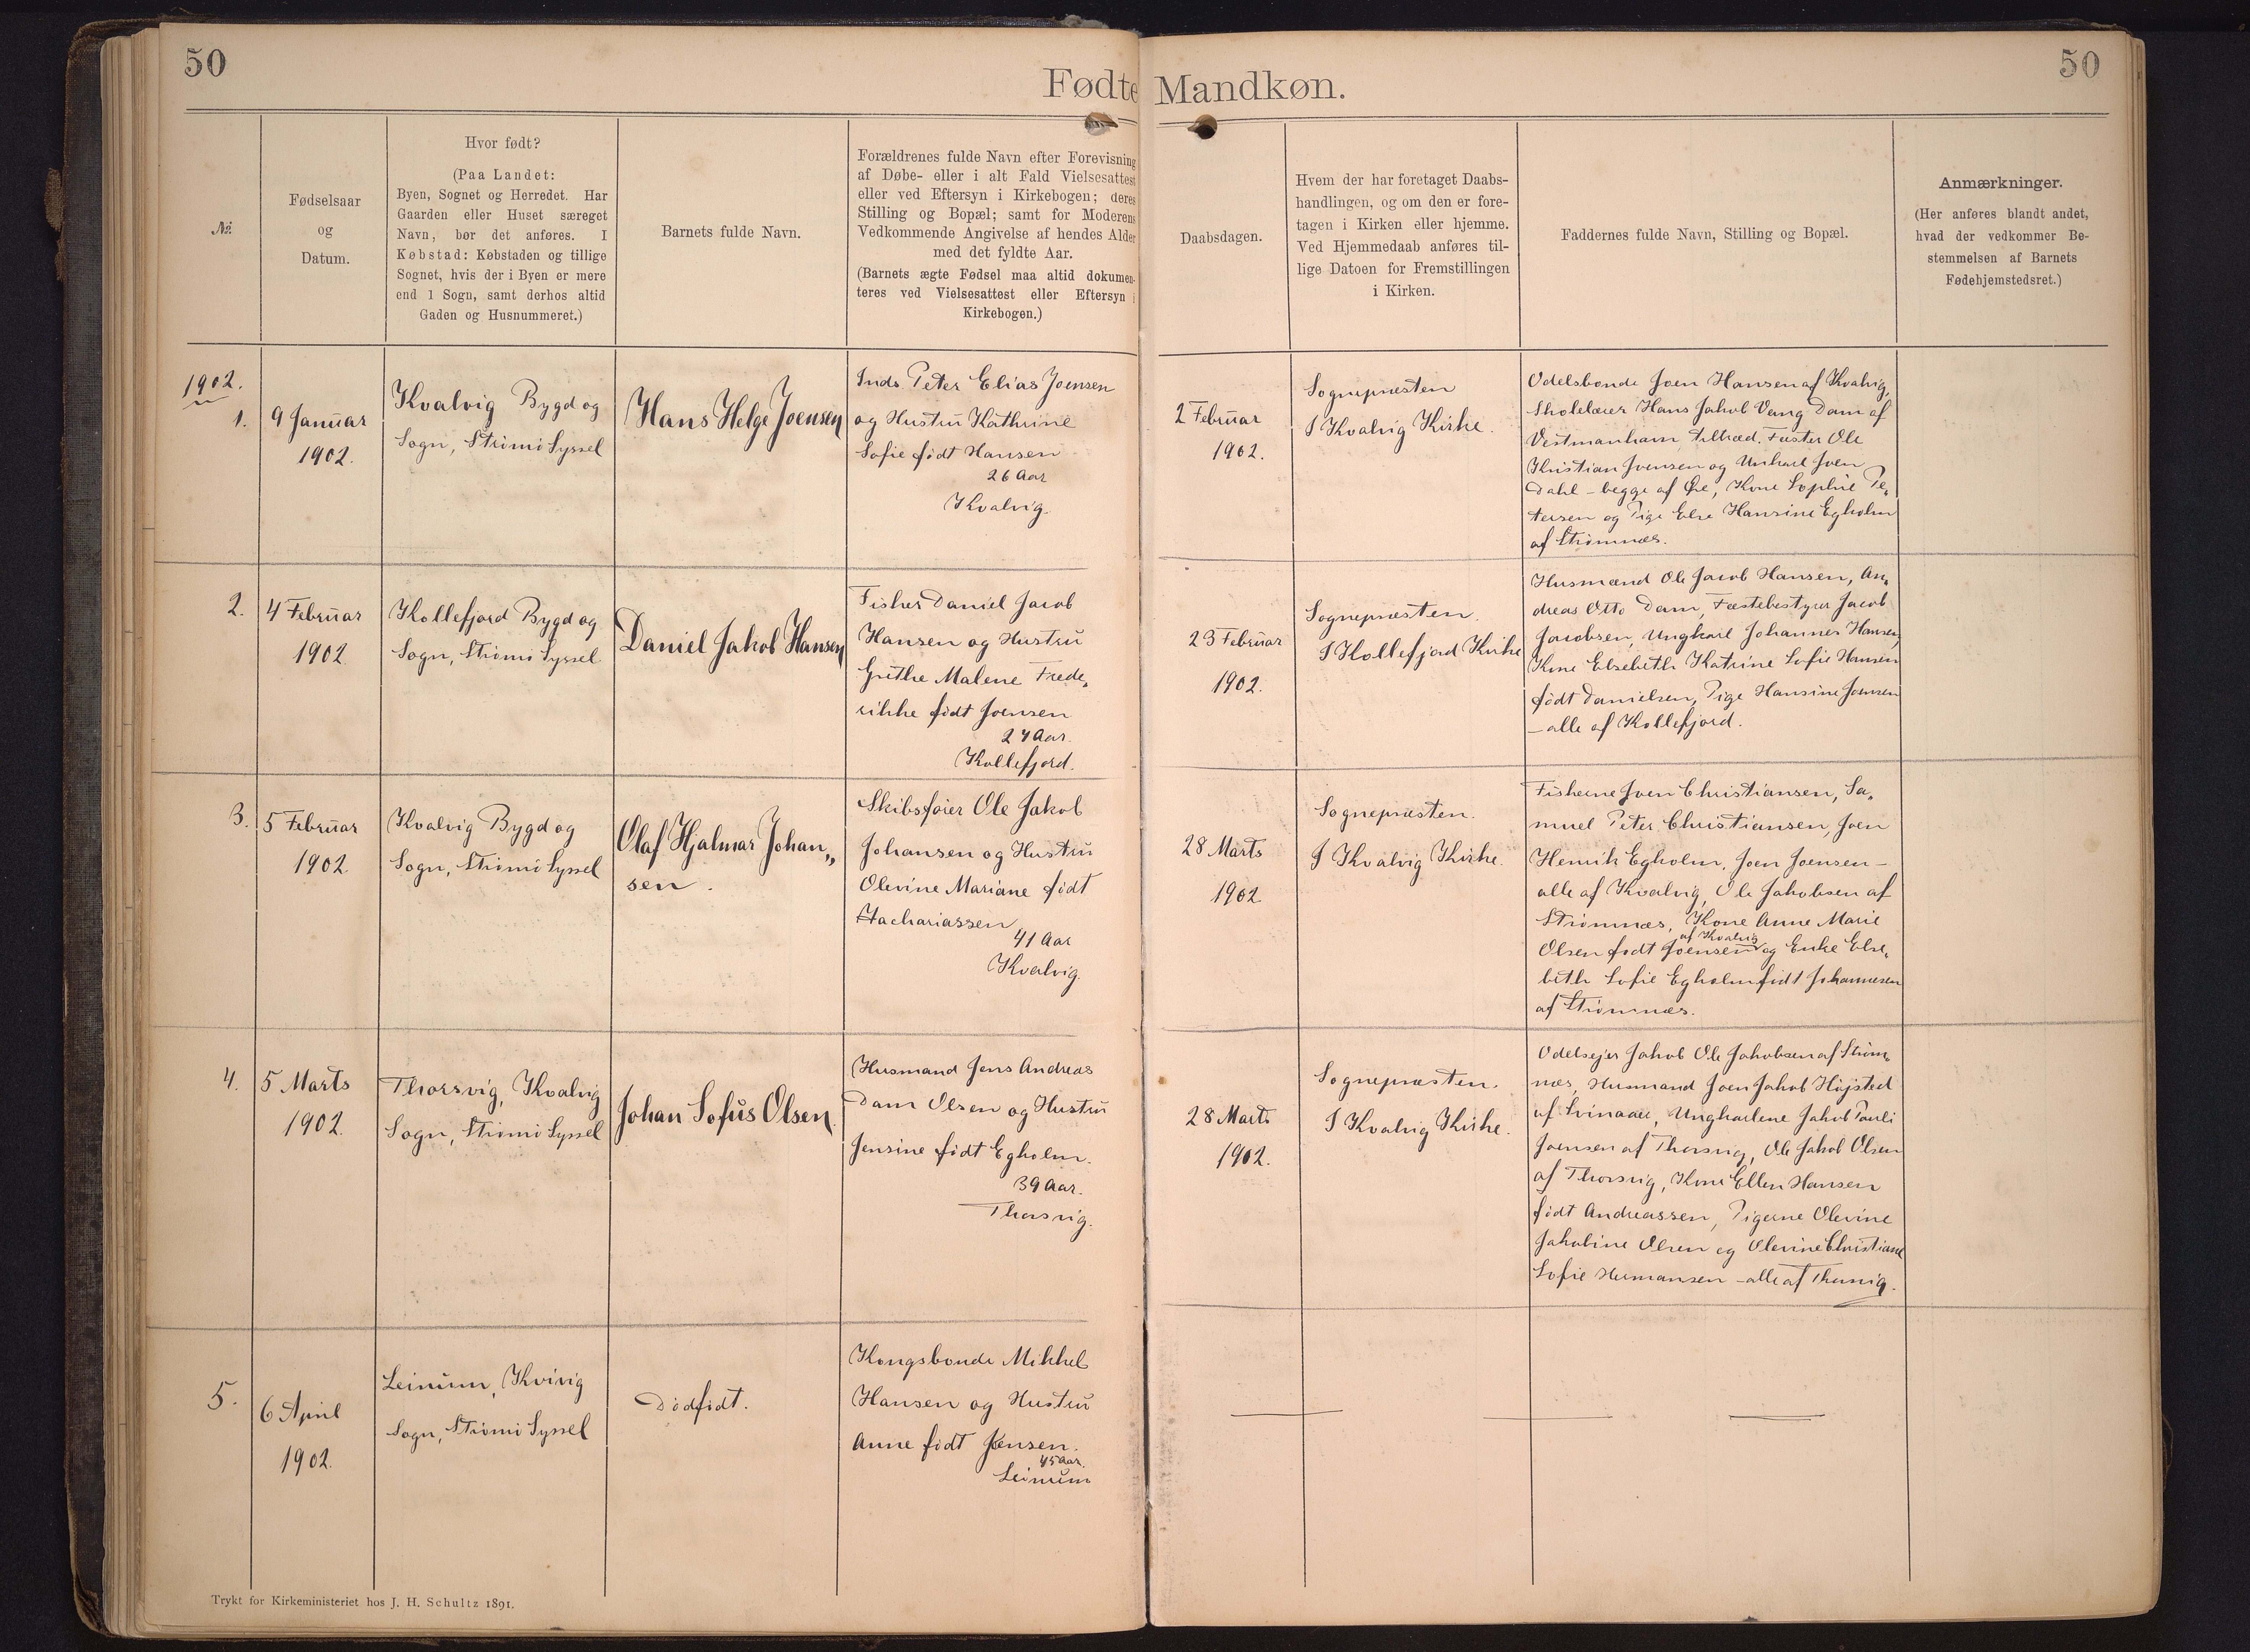 50
50
Fødte Mandkøn.
№
Fødselsaar
og
Datum.
Hvor født?
(Paa Landet:
Byen, Sognet og Herredet. Har
Gaarden eller Huset særeget
Navn, bør det anføres. I
Købstad: Købstaden og tillige
Sognet, hvis der i Byen er mere
end 1 Sogn, samt derhos altid
Gaden og Husnummeret.)
Barnets fulde Navn.
Forældrenes fulde Navn efter Forevisning
af Døbe- eller i alt Fald Vielsesattest
eller ved Eftersyn i Kirkebogen; deres
Stilling og Bopæl; samt for Moderens
Vedkommende Angivelse af hendes Alder
med det fyldte Aar.
(Barnets ægte Fødsel maa altid dokumen-
teres ved Vielsesattest eller Eftersyn i
Kirkebogen.)
Daabsdagen.
Hvem der har foretaget Daabs-
handlingen, og om den er fore-
tagen i Kirken eller hjemme.
Ved Hjemmedaab anføres til-
lige Datoen for Fremstillingen
i Kirken.
Faddernes fulde Navn, Stilling og Bopæl.
Anmærkninger.
(Her anføres blandt andet,
hvad der vedkommer Be-
stemmelsen af Barnets
Fødehjemstedsret.)
1902.
1.
9 Januar
1902.
Kvalvig Bygd og
Sogn, Strømø Syssel
Hans Helge Joensen
Inds. Peter Elias Joensen
og Hustru Kathrine
Sofie født Hansen
26 Aar
Kvalvig.
2 Februar
1902.
Sognepræsten
I Kvalvig Kirke.
Odelsbonde Joen Hansen af Kvalvig,
Skolelærer Hans Jakob Vang Dam af
Vestmanhavn, Fæster Ole
Kristian Joensen og Unkarl Joen
Dahl – begge af Øre, Kone Sophie Pe„
tersen og Pige Else Hansine Egholm
af Strømnæs.
2.
4 Februar
1902
Kollefjord Bygd og
Sogn, Strømø Syssel
Daniel Jakob Hansen
Fisker Daniel Jacob
Hansen og Hustru
Grethe Malene Frede„
rikke født Joensen
27 Aar.
Kollefjord.
23 Februar
1902.
Sognepræsten.
I Kollefjord Kirke
Husmænd Ole Jacob Hansen, An„
dreas Otto Dam, Fæstebestyrer Jacob
Jacobsen, Ungkarl Johannes Hansen,
Kone Elsebeth Katrine Sofie Hansen
født Danielsen, Pige Hansine Joensen
– alle af Kollefjord.
3.
5 Februar
1902.
Kvalvig Bygd og
Sogn, Strømø Syssel
Olaf Hjalmar Johan„
sen.
Skibsfører Ole Jakob
Johansen og Hustru
Olevine Mariane født
Zachariassen
41 Aar
Kvalvig.
28 Marts
1902.
Sognepræsten.
I Kvalvig Kirke.
Fiskerne Joen Christiansen, Sa„
muel Peter Christiansen, Joen
Henrik Egholm, Joen Joensen –
alle af Kvalvig, Ole Jakobsen af
Strømnæs, Kone Anne Marie
af Kvalvig
Olsen født Joensen og Enke Else„
beth Sofie Egholm født Johannesen
af Strømnæs.
4.
5 Marts
1902.
Thorsvig, Kvalvig
Sogn, Strømø Syssel
Johan Sofus Olsen.
Husmand Jens Andreas
Dam Olsen og Hustru
Jensine født Egholm.
39 Aar.
Thorsvig.
28 Marts
1902.
Sognepræsten.
I Kvalvig Kirke.
Odelsejer Jakob Ole Jakobsen af Strøm„
næs, Husmand Joen Jakob Højsted
af Svinaae, Ungkarlene Jakob Pauli
Joensen af Thorsvig, Ole Jakob Olsen
af Thorsvig, Kone Ellen Hansen
født Andreassen, Pigerne Olevine
Jakobine Olsen og Olevine Christiane
Sofie Hermansen – alle af Thorsvig.
5.
6 April
1902.
Leinum, Kvivig
Sogn, Strømø Syssel
Dødfødt.
Kongsbonde Mikkel
Hansen og Hustru
Anne født Jensen.
45 Aar.
Leinum
Trykt for Kirkeministeriet hos J. H. Schultz 1891.